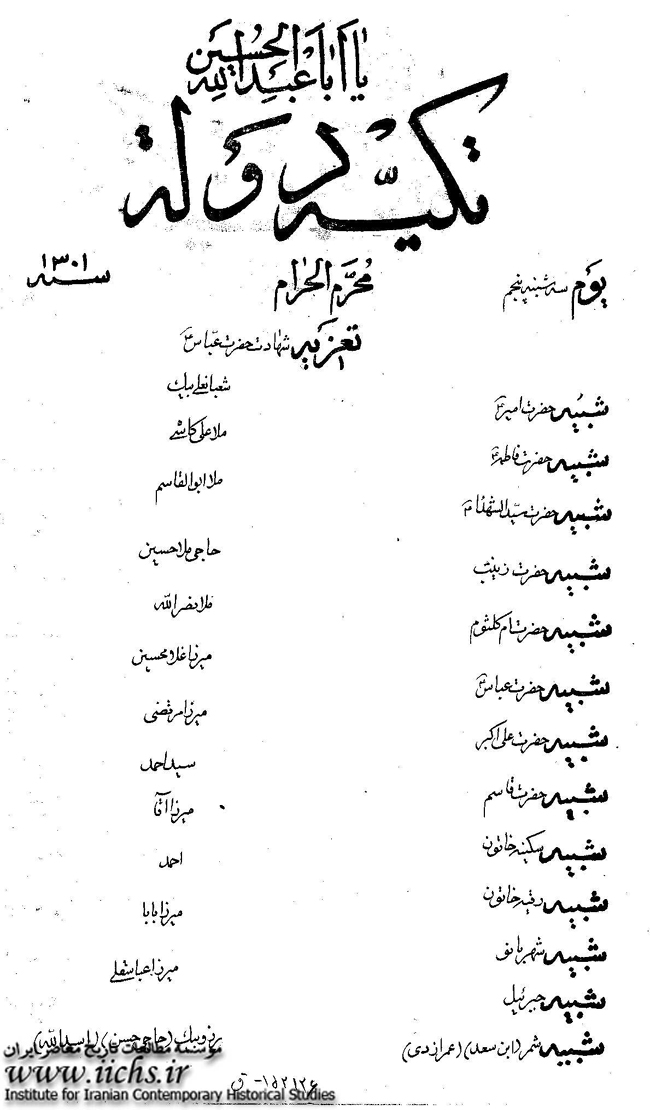 یا أبا عبد الله الحسین
تکیه دولة
یوم سه شنبه پنجم محرّم الحرام سنه ۱۳۰۱
تعزیه شهادت حضرت عباس ع
شبیه حضرت امیر ع شعبانعلی بیک
شبیه حضرت فاطمه ع ملا علی کاشی
شبیه حضرت سید الشهداء ع ملا ابوالقاسم
شبیه حضرت زینب حاجی ملا حسین
شبیه حضرت ام کلثوم ملا نصرالله
شبیه حضرت عباس ع میرزا غلامحسین
شبیه حضرت علی اکبر میرزا مرتضی
شبیه حضرت قاسم سید احمد
شبیه سکینه خاتون میرزا آقا
شبیه رقیه خاتون احمد
شبیه شهربانو میرزا بابا
شبیه جبرئیل میرزا عباسقلی
شبیه شمر (ابن سعد) (عمر ازدی) بیک (حاجی حسن) (اسدالله)
مؤسسه مطالعات تاریخ معاصر ایران
www.iichs.ir
Institute for Iranian Contemporary Historical Studies